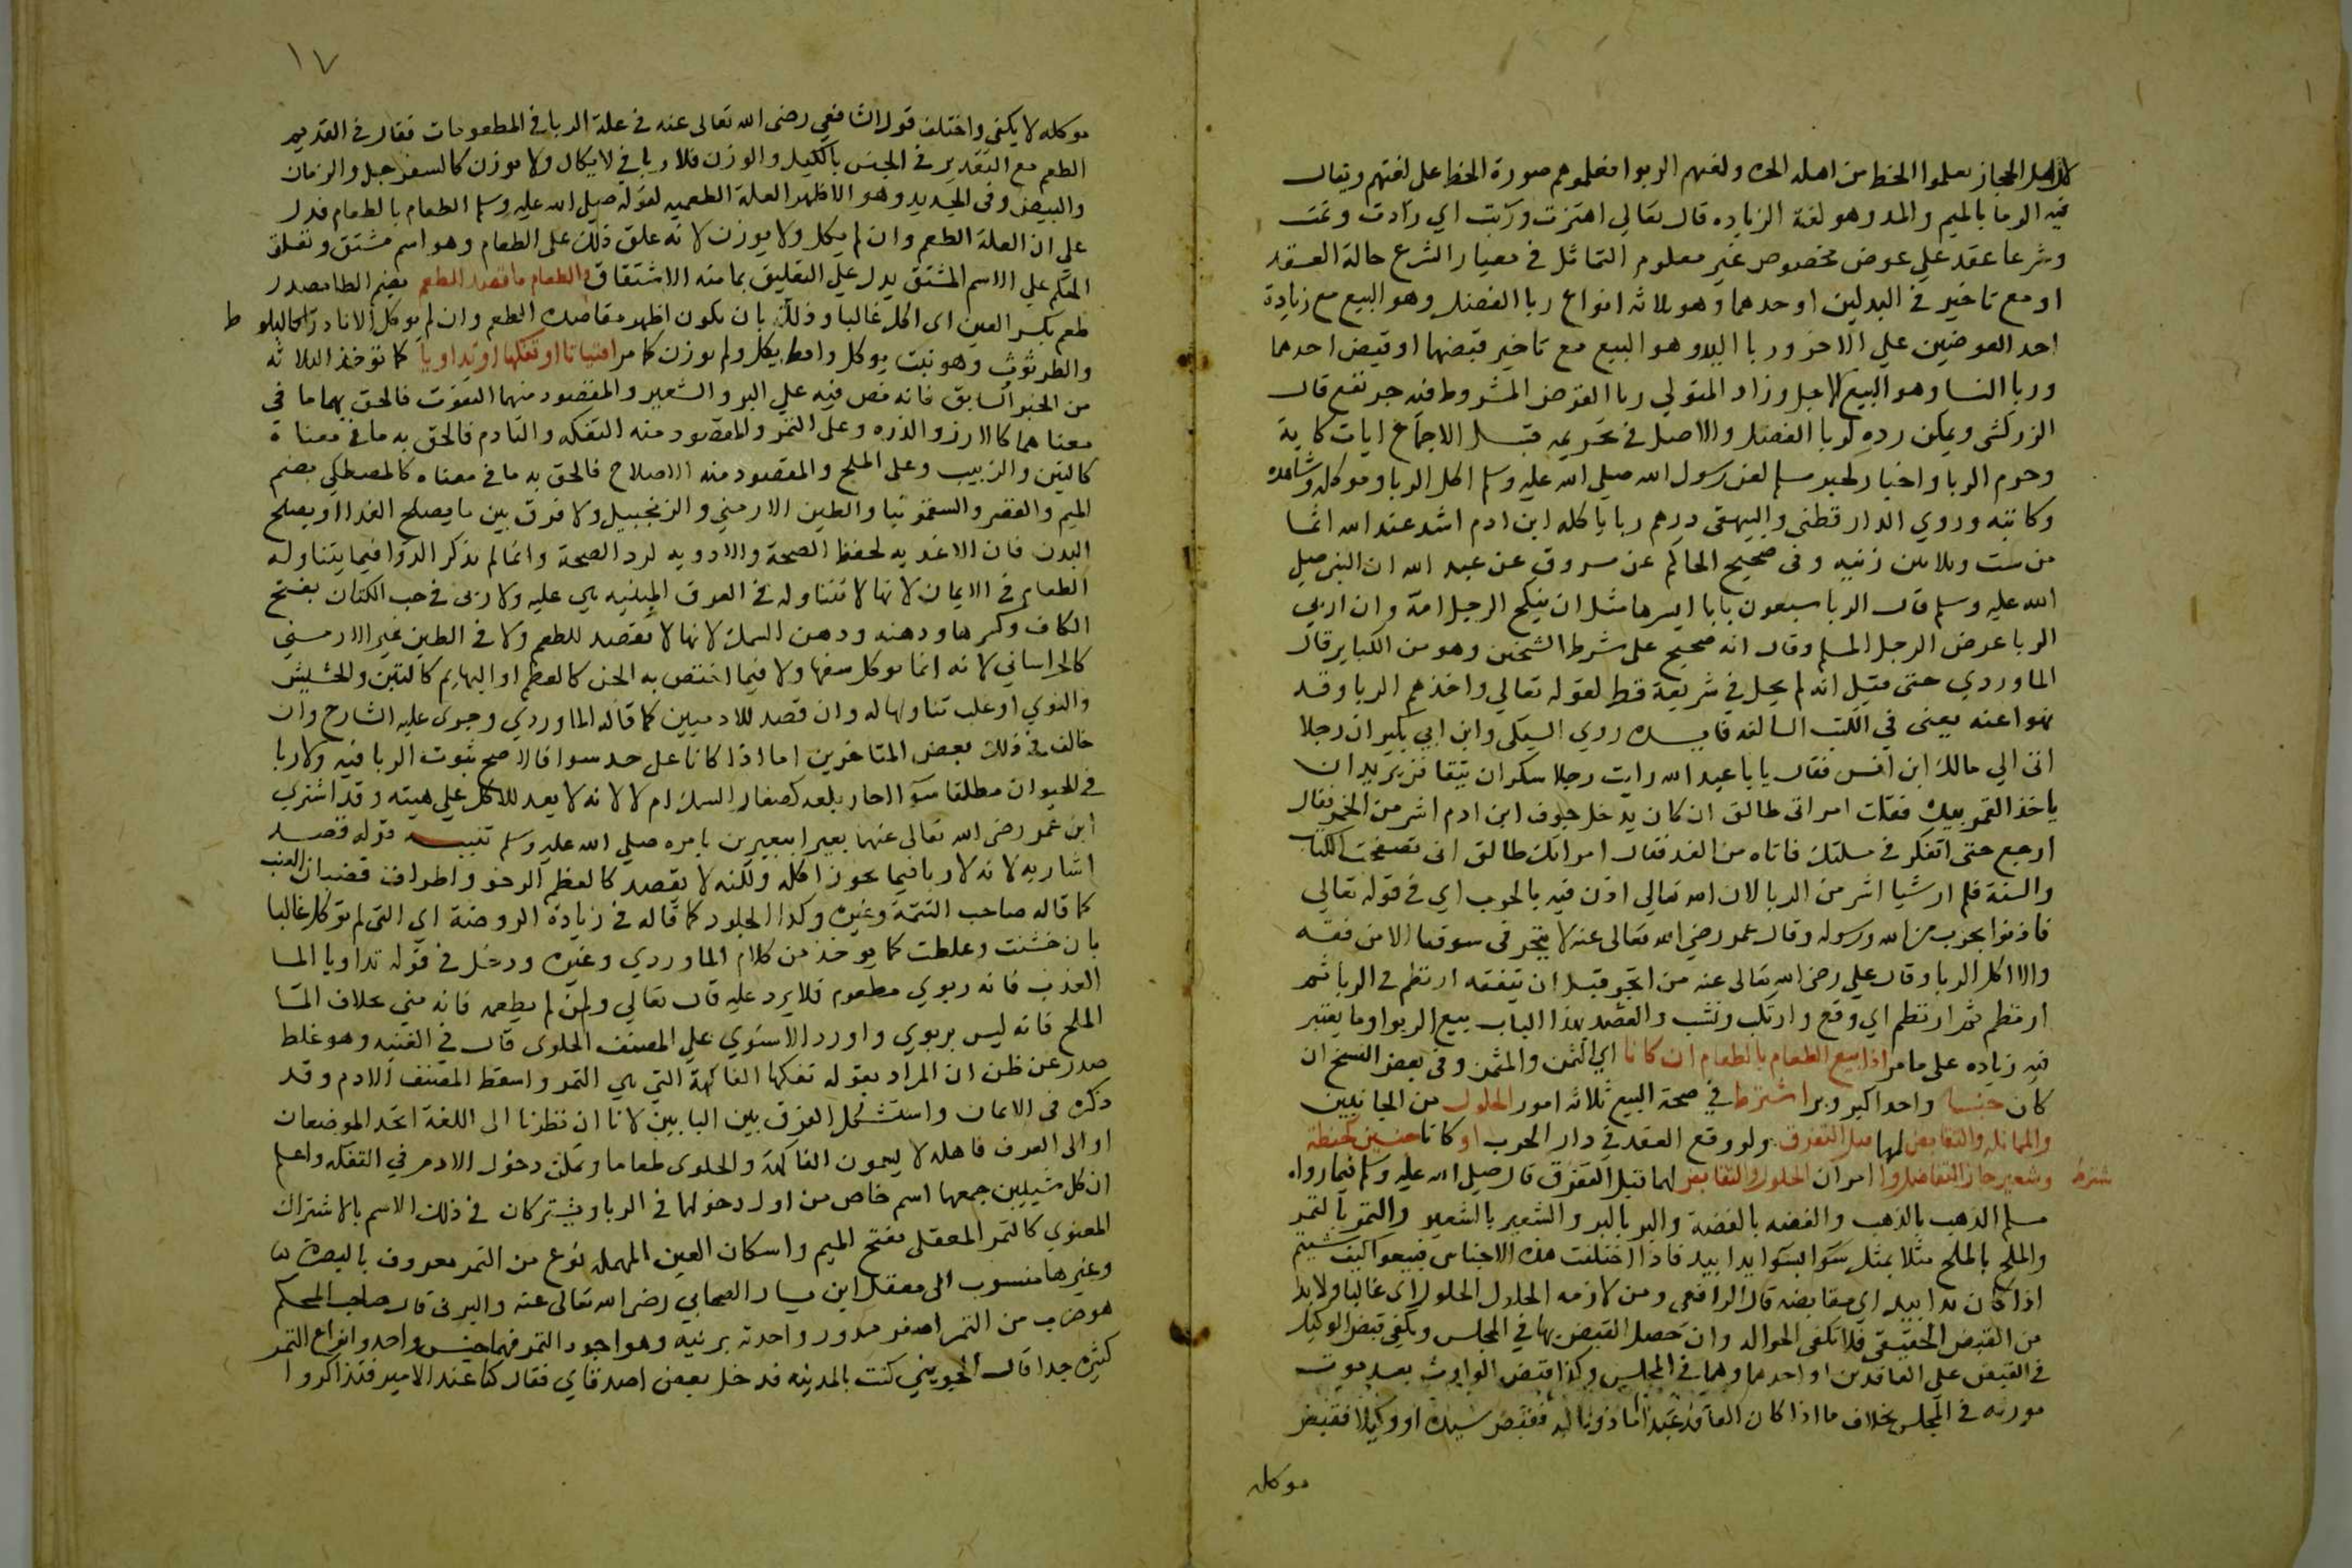 لان اهل الحجاز تعلموا الخط من اهل الحيرة ولغتهم الربوا فعلموهم صورة الخط على لغتهم ويقال
فيه الرما بالميم والمد وهو لغة الزياده قال تعالي اهتزت وربت اي زادت ونمت
وشرعا عقد علي عوض مخصوص غير معلوم التماثل في معيار الشرع حالة العقد
او مع تاخير في البدلين او احدهما وهو ثلاثه انواع ربا الفضل وهو البيع مع زيادة
احد العوضين علي الاخر وربا اليد وهو البيع مع تاخير قبضهما او قبض احدهما
وربا النسا وهو البيع لاجل وزاد المتولي ربا القرض المشروط فيه جر نفع قال
الزركشي ويمكن رده لربا الفضل والاصل في تحريمه قبل الاجماع ايات كاية
وحرم الربا واخبار كخبر مسلم لعن رسول الله صلي الله عليه وسلم اكل الربا وموكله وشاهده
وكاتبه وروي الدارقطني والبيهقي درهم ربا ياكله ابن ادم اشد عند الله اثما
من ست وثلاثين زنيه وفي صحيح الحاكم عن مسروق عن عبد الله ان النبي صلي
الله عليه وسلم قال الربا سبعون بابا ايسرها مثل ان ينكح الرجل امه وان اربي
الربا عرض الرجل المسلم وقال انه صحيح على شرط الشيخين وهو من الكباير قال
الماوردي حتى قيل انه لم يحل في شريعة قط لقوله تعالي واخذهم الربا وقد
نهوا عنه يعني في الكتب السالفه فايده روي السبكي وابن ابي بكير ان رجلا
اتى الي مالك ابن انس فقال يابا عبد الله رايت رجلا سكران يتقافز يريد ان
ياخذ القمر بيده فقلت امراتي طالق ان كان يدخل جوف ابن ادم اشر من الخمر فقال
ارجع حتى اتفكر في مسلتك فاتاه من الغد فقال امراتك طالق اني تصفحت الكتاب
والسنة فلم ار شيا اشر من الربا لان الله تعالي اذن فيه بالحرب اي في قوله تعالي
فاذنوا بحرب من الله ورسوله وقال عمر رضي الله تعالى عنه لا يتجر في سوقنا الا من فقه
والا اكل الربا وقال علي رضي الله تعالى عنه من اتجر قبل ان يتفقه ارتطم في الربا ثم
ارتطم ثم ارتطم اي وقع وارتبك ونشب والقصد بهذا الباب بيع الربوا وما يعتبر
فيه زياده على ما مر اذا بيع الطعام بالطعام ان كانا اي الثمن والمثمن وفي بعض النسخ ان
كان جنسا واحدا كبر وبر اشترط في صحة البيع ثلاثه امور الحلول من الجانبين
والمماثله والتقابض لهما قبل التفرق ولو وقع العقد في دار الحرب او كانا جنسين كحنطة
وشعير جاز التفاضل واشترط امران الحلول والتقابض لهما قبل التفرق قال صلي الله عليه وسلم فيما رواه
مسلم الذهب بالذهب والفضه بالفضة والبر بالبر والشعير بالشعير والتمر بالتمر
والملح بالملح مثلا بمثل سوا بسوا يدا بيد فاذا اختلفت هذه الاجناس فبيعوا كيف شيتم
اذا كان يدا بيد اي مقابضه قال الرافعي ومن لازمه الحلول اي غالبا ولا بد
من القبض الحقيقي فلا تكفي الحواله وان حصل القبض بها في المجلس ويكفي قبض الوكيل
في القبض على العاقدين او احدهما وهما في المجلس وكذا قبض الوارث بعد موت
مورثه في المجلس بخلاف ما اذا كان العاقد عبدا ماذونا له فقبض سيده او وكيلا فقبض
موكله
١٧
موكله لا يكفي واختلف قول الشافعي رضي الله تعالى عنه في علة الربا في المطعومات فقال في القديم
الطعم مع التقدير في الجنس بالكيل والوزن فلا ربا في لا يكال ولا يوزن كالسفرجل والرمان
والبيض وفي الجديد وهو الاظهر العلة الطعميه لقوله صلي الله عليه وسلم الطعام بالطعام فدل
على ان العلة الطعم وان لم يكل ولا يوزن لانه علق ذلك على الطعام وهو اسم مشتق وتعلق
الحكم علي الاسم المشتق يدل على التعليق بما منه الاشتقاق والطعام ما قصد للطعم بضم الطا مصدر
طعم بكسر العين اي اكل غالبا وذلك بان يكون اظهر مقاصده الطعم وان لم يوكل الا نادرا كالبلوط
والطرثوث وهو نبت يوكل وان لم يكل ولم يوزن كما مر اقتياتا او تفكها او تداويا كما توخذ الثلاثه
من الخبر السابق فانه نص فيه علي البر والشعير والمقصود منهما التقوت فالحق بهما ما في
معناهما كالارز والذره وعلى التمر والمقصود منه التفكه والتادم فالحق به ما في معناه
كالتين والزبيب وعلى الملح والمقصود منه الاصلاح فالحق به ما في معناه كالمصطكي بضم
الميم والقصر والسقمونيا والطين الارمني والزنجبيل ولا فرق بين ما يصلح الغذا او يصلح
البدن فان الاغذيه لحفظ الصحة والادويه لرد الصحة وانما لم يذكر الدوا فيما يتناوله
الطعام في الايمان لانها لا تتناوله في العرف المبنيه هي عليه ولا ربي في حب الكتان بفتح
الكاف وكسرها ودهنه ودهن السمك لانها لا تقصد للطعم ولا في الطين غير الارمني
كالخراساني لانه انما يوكل سفها ولا فيما اختص به الجن كالعظم او البهايم كالتبن والحشيش
والنوي او غلب تناولها له وان قصد للادميين كما قاله الماوردي وجرى عليه الشارح وان
خالف في ذلك بعض المتاخرين اما اذا كانا على حد سوا فالاصح ثبوت الربا فيه ولا ربا
في الحيوان مطلقا سوا احاز بلعه كصغار السمك ام لا لانه لا يعد للاكل علي هيته وقد اشترى
ابن عمر رضي الله تعالى عنهما بعيرا ببعيرين بامره صلي الله عليه وسلم تنبيه قوله قصد
اشار به لانه لا ربا فيما يجوز اكله ولكنه لا يقصد كالعظم الرخو واطراف قضبان العنب
كما قاله صاحب التتمة وغيره وكذا الجلود كما قاله في زيادة الروضة اي التي لم توكل غالبا
بان خشنت وغلظت كما يوخذ من كلام الماوردي وغيره ودخل في قوله تداويا الما
العذب فانه ربوي مطعوم فلا يرد عليه قال تعالي ومن لم يطعمه فانه مني بخلاف الما
الملح فانه ليس بربوي واورد الاسنوي علي المصنف الحلوى قال في الغنيه وهو غلط
صدر عن ظن ان المراد بقوله تفكها الفاكهة التي هي الثمر واسقط المصنف الادم وقد
ذكره في الايمان واستشكل الفرق بين البابين لانا ان نظرنا الى اللغة اتحد الموضعان
او الى العرف فاهله لا يسمون الفاكهة والحلوى طعاما ويمكن دخول الادم في التفكه واعلم
ان كل شييين جمعهما اسم خاص من اول دخولهما في الربا ويشتركان في ذلك الاسم بالاشتراك
المعنوي كالتمر المعقلي بفتح الميم واسكان العين المهمله نوع من التمر معروف بالبصرة
وغيرها منسوب الى معقل ابن يسار الصحابي رضي الله تعالى عنه والبرني قال صاحب المحكم
هو ضرب من التمر اصفر مدور واحدته برنيه وهو اجود التمر فهما جنس واحد وانواع التمر
كثيره جدا قال الجويني كنت بالمدينه فدخل بعض اصدقاي فقال كنا عند الامير فتذاكروا